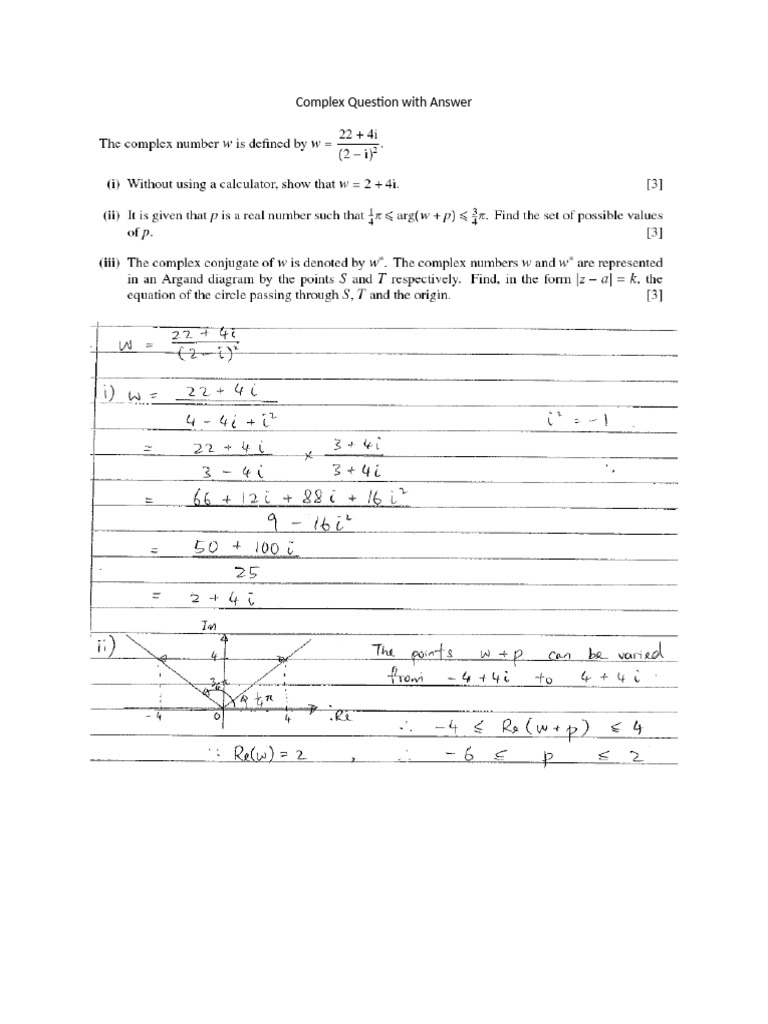 Complex Question with Answer
The complex number w is defined by w = \frac{22 + 4i}{(2 – i)²}.
(i) Without using a calculator, show that w = 2 + 4i. [3]
(ii) It is given that p is a real number such that ¼π ⩽ arg(w + p) ⩽ ¾π. Find the set of possible values
of p. [3]
(iii) The complex conjugate of w is denoted by w*. The complex numbers w and w* are represented
in an Argand diagram by the points S and T respectively. Find, in the form |z – a| = k, the
equation of the circle passing through S, T and the origin. [3]
w = \frac{22 + 4i}{(2 – i)²}
i) w = \frac{22 + 4i}{4 – 4i + i²} i² = –1
= \frac{22 + 4i}{3 – 4i} × \frac{3 + 4i}{3 + 4i}
= \frac{66 + 12i + 88i + 16i²}{9 – 16i²}
= \frac{50 + 100i}{25}
= 2 + 4i
Im
ii) 4 The points w + p can be varied
from –4 + 4i to 4 + 4i
¼π
–4 0 4 Re ∴ –4 ≤ Re(w + p) ≤ 4
∵ Re(w) = 2 , ∴ –6 ≤ p ≤ 2